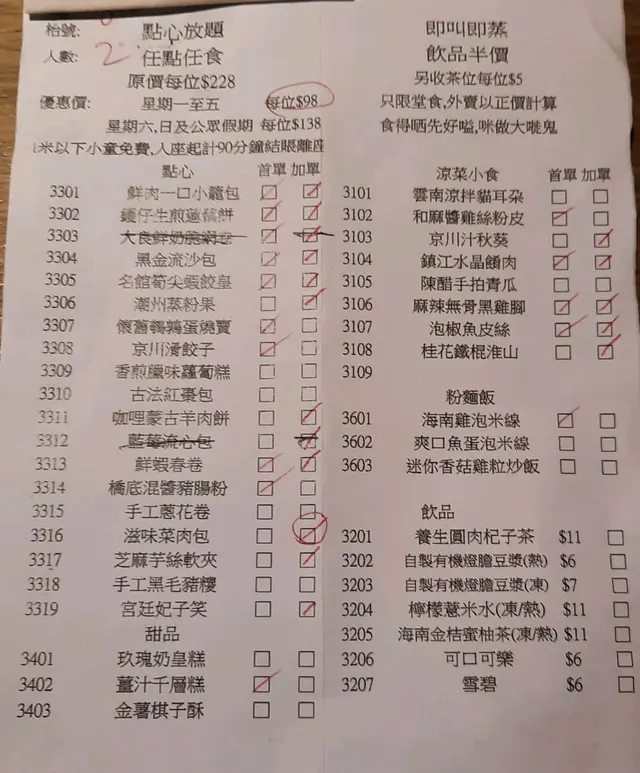 枱號:
點心放題
人數: 2
任點任食
原價每位$228
優惠價: 星期一至五 每位$98
星期六,日及公眾假期 每位$138
米以下小童免費,入座起計90分鐘結賬離座
點心 首單 加單
3301 鮮肉一口小籠包
3302 鑊仔生煎蓮藕餅
3303 大良鮮奶脆網卷
3304 黑金流沙包
3305 名館筍尖蝦餃皇
3306 潮州蒸粉果
3307 懷舊鵪鶉蛋燒賣
3308 京川滑餃子
3309 香煎臘味蘿蔔糕
3310 古法紅棗包
3311 咖哩蒙古羊肉餅
3312 藍莓流心包
3313 鮮蝦春卷
3314 橋底混醬豬腸粉
3315 手工蔥花卷
3316 滋味菜肉包
3317 芝麻芋絲軟夾
3318 手工黑毛豬糭
3319 宮廷妃子笑
甜品
3401 玫瑰奶皇糕
3402 薑汁千層糕
3403 金薯棋子酥
即叫即蒸
飲品半價
另收茶位每位$5
只限堂食,外賣以正價計算
食得晒先好嗌,咪做大嘥鬼
涼菜小食 首單 加單
3101 雲南涼拌貓耳朶
3102 和麻醬雞絲粉皮
3103 京川汁秋葵
3104 鎮江水晶餚肉
3105 陳醋手拍青瓜
3106 麻辣無骨黑雞腳
3107 泡椒魚皮絲
3108 桂花鐵棍淮山
3109
粉麵飯
3601 海南雞泡米線
3602 爽口魚蛋泡米線
3603 迷你香菇雞粒炒飯
飲品
3201 養生圓肉杞子茶 $11
3202 自製有機燈膽豆漿(熱) $6
3203 自製有機燈膽豆漿(凍) $7
3204 檸檬薏米水(凍/熱) $11
3205 海南金桔蜜柚茶(凍/熱) $11
3206 可口可樂 $6
3207 雪碧 $6